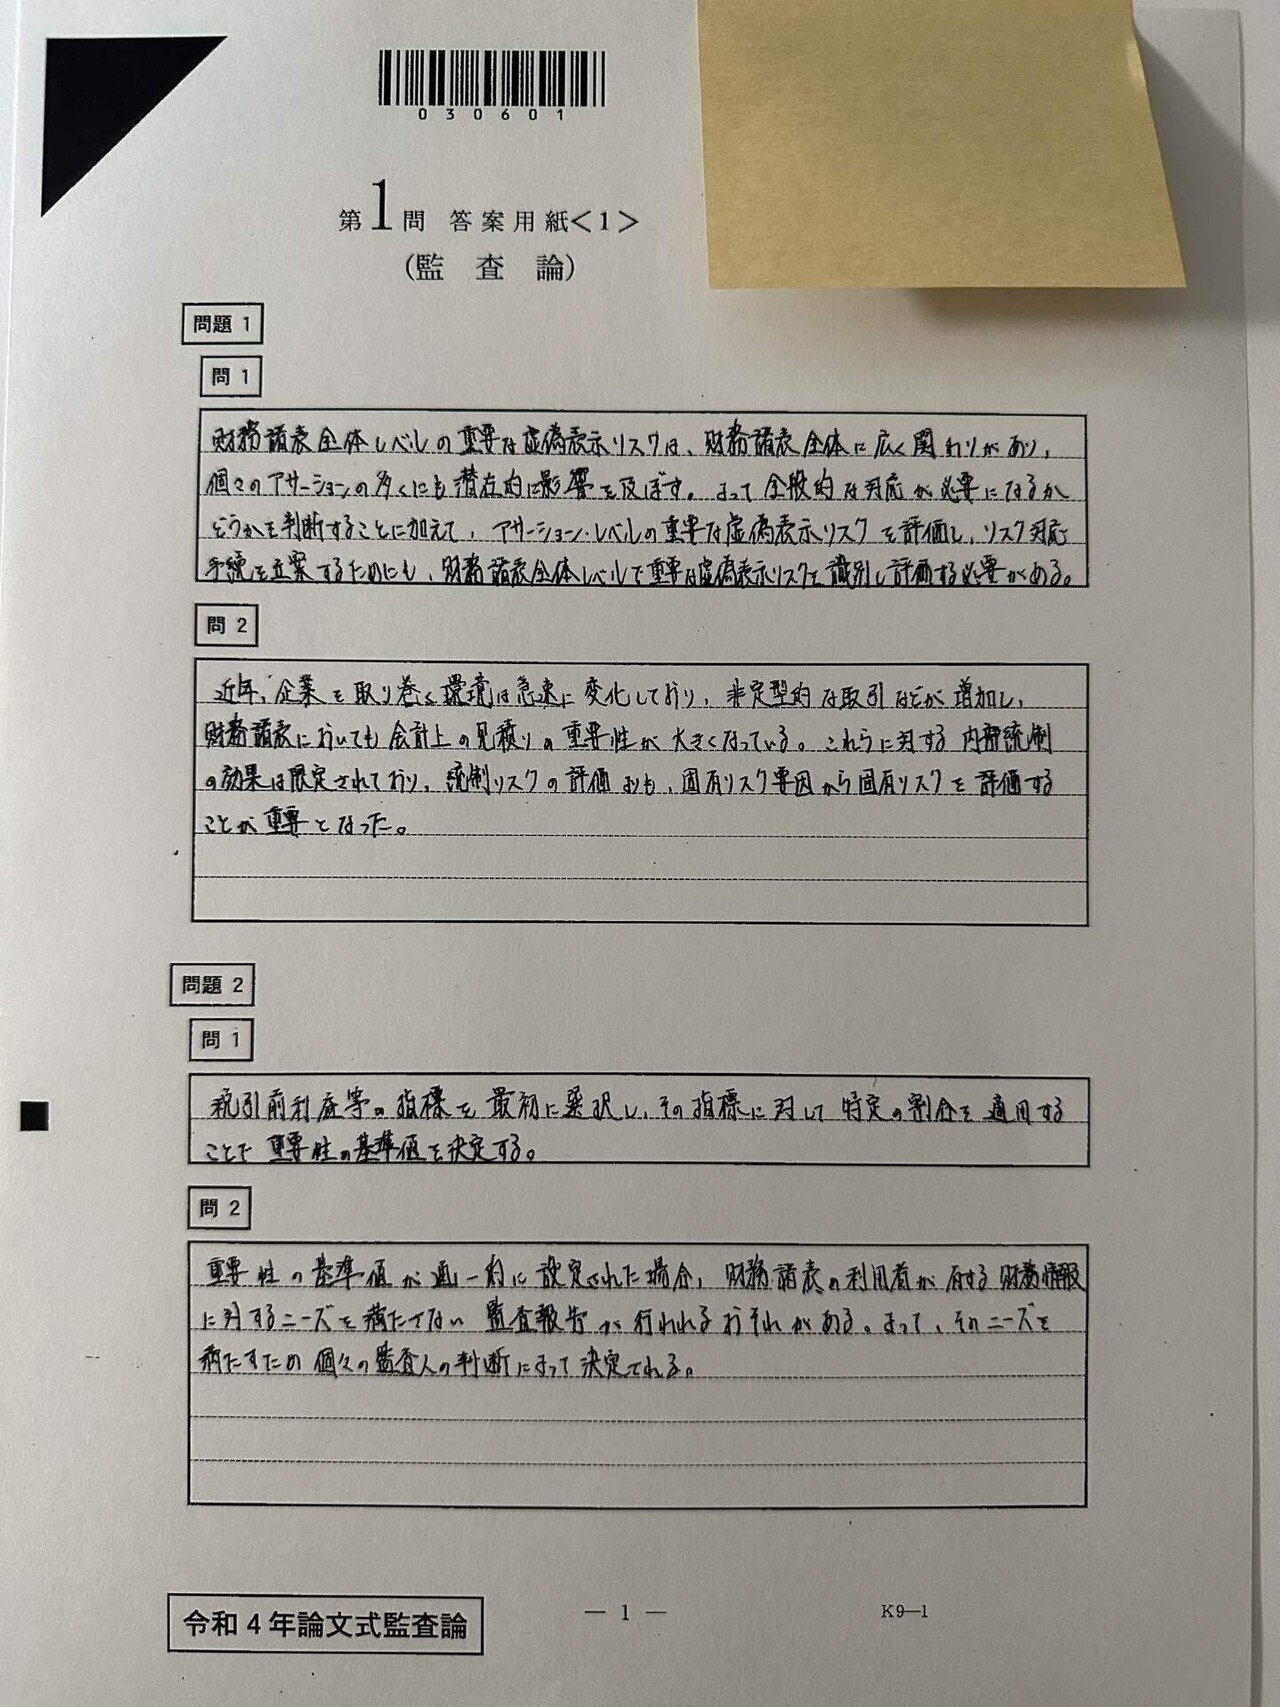 030601
第1問 答案用紙<1>
(監 査 論)
問題 1
問 1
財務諸表全体レベルの重要な虚偽表示リスクは、財務諸表全体に広く関わりがあり、
個々のアサーションの多くにも潜在的に影響を及ぼす。よって全般的な対応が必要になるか
どうかを判断することに加えて、アサーション・レベルの重要な虚偽表示リスクを評価し、リスク対応
手続を立案するためにも、財務諸表全体レベルで重要な虚偽表示リスクを識別し評価する必要がある。
問 2
近年、企業を取り巻く環境は急速に変化しており、非定型的な取引などが増加し、
財務諸表においても会計上の見積りの重要性が大きくなっている。これらに対する内部統制
の効果は限定されており、統制リスクの評価よりも、固有リスク要因から固有リスクを評価する
ことが重要となった。
問題 2
問 1
税引前利益等の指標を最初に選択し、その指標に対して特定の割合を適用する
ことで重要性の基準値を決定する。
問 2
重要性の基準値が画一的に設定された場合、財務諸表の利用者が有する財務情報
に対するニーズを満たさない監査報告が行われるおそれがある。よって、そのニーズを
満たすため個々の監査人の判断によって決定される。
令和4年論文式監査論
— 1 —
K9—1